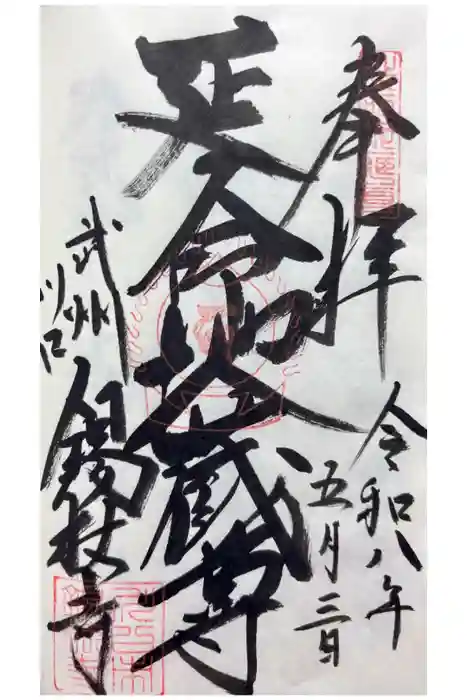 奉拝
令和八年
五月三日
延命地蔵尊
武州
川口
錫杖寺